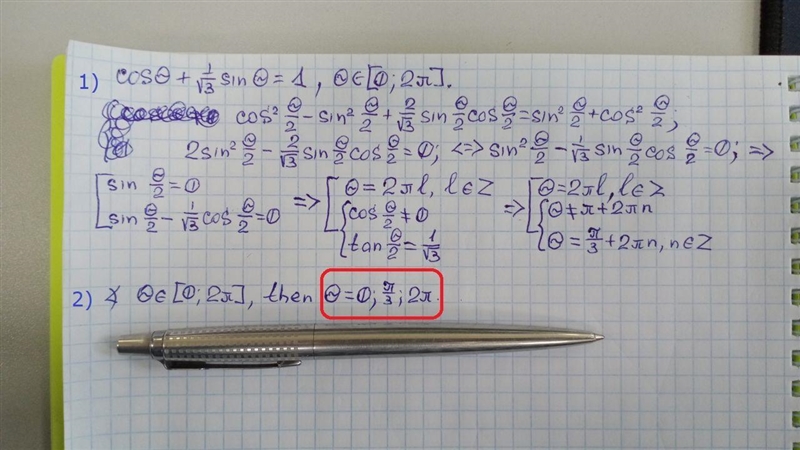 1) cosΘ + 1/√3 sinΘ = 1, Θ∈[0; 2π].
cos² Θ/2 - sin² Θ/2 + 2/√3 sin Θ/2 cos Θ/2 = sin² Θ/2 + cos² Θ/2;
2sin² Θ/2 - 2/√3 sin Θ/2 cos Θ/2 = 0; <=> sin² Θ/2 - 1/√3 sin Θ/2 cos Θ/2 = 0; =>
[ sin Θ/2 = 0 => [ Θ = 2πl, l∈Z => [ Θ = 2πl, l∈Z
sin Θ/2 - 1/√3 cos Θ/2 = 0 { cos Θ/2 ≠ 0 { Θ ≠ π + 2πn
tan Θ/2 = 1/√3 Θ = π/3 + 2πn, n∈Z
2) ∢ Θ∈[0; 2π], then Θ = 0; π/3; 2π.